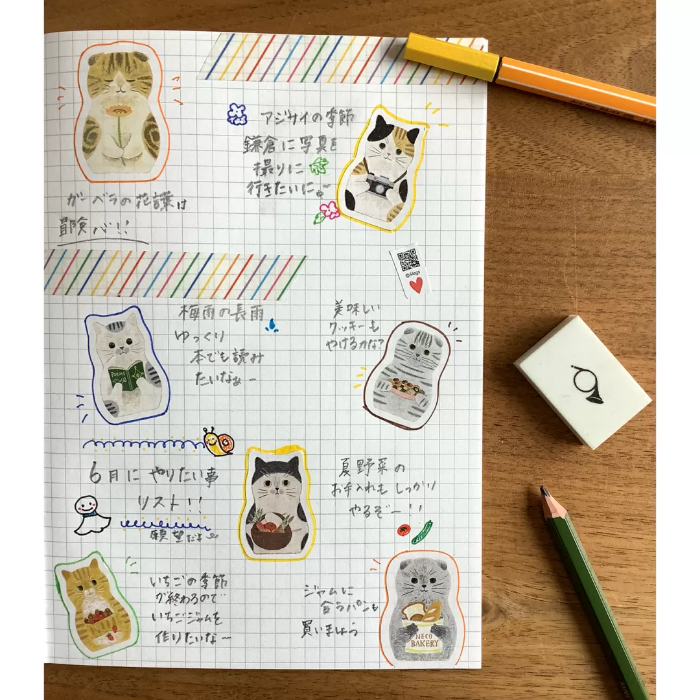 アジサイの季節
鎌倉に写真を
撮りに
行きたいに。
ガーベラの花言葉は
冒険心!!
梅雨の長雨
ゆっくり
本でも読み
たいなぁー
美味しい
クッキーも
やけるかな?
6月にやりたい事
リスト!!
願望だよ
夏野菜の
お手入れもしっかり
やるぞー!!
いちごの季節
が終わるので
いちごジャムを
作りたいなー
ジャムに
合うパンも
買いましょう
NECO
BAKERY